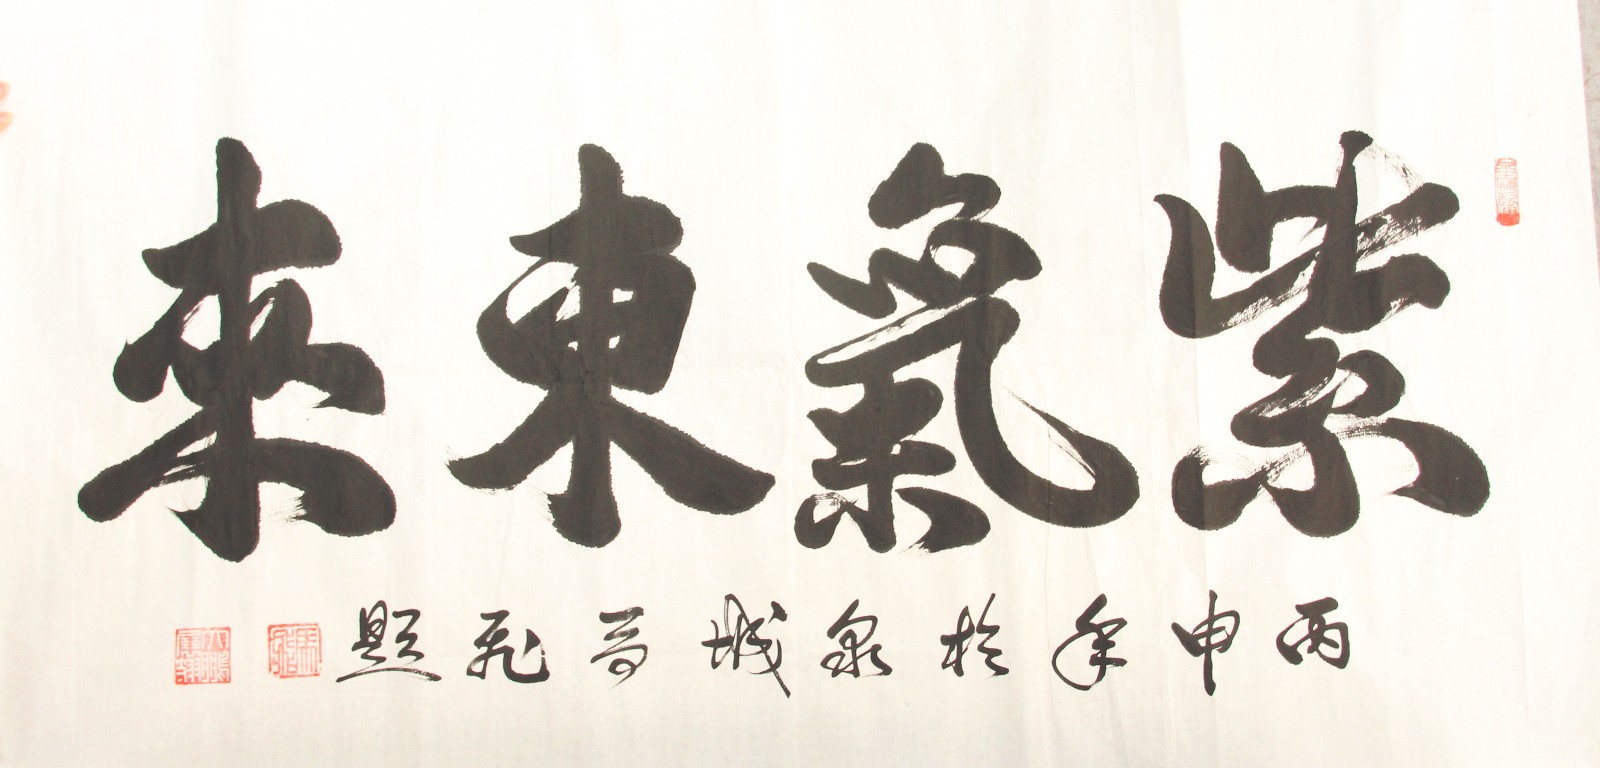 紫氣東來
丙申年於泉城马飞題